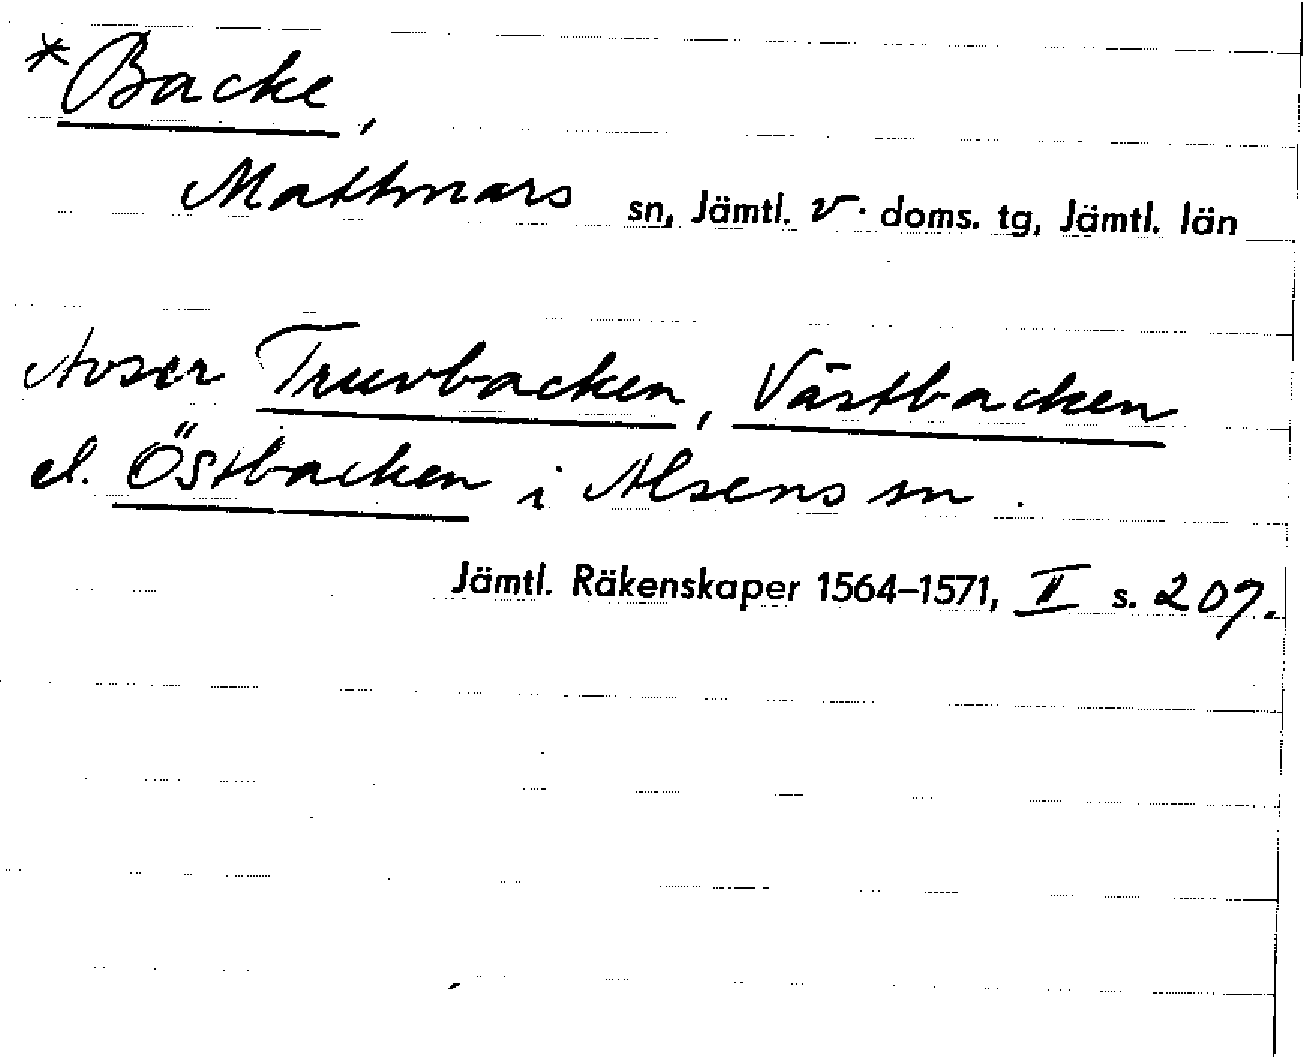 *Backe,
Mattmars sn, Jämtl. v. doms. tg, Jämtl. län
Avser Truvbacken, Västbacken
el. Östbacken i Alsens sn.
Jämtl. Räkenskaper 1564–1571, II s. 209.